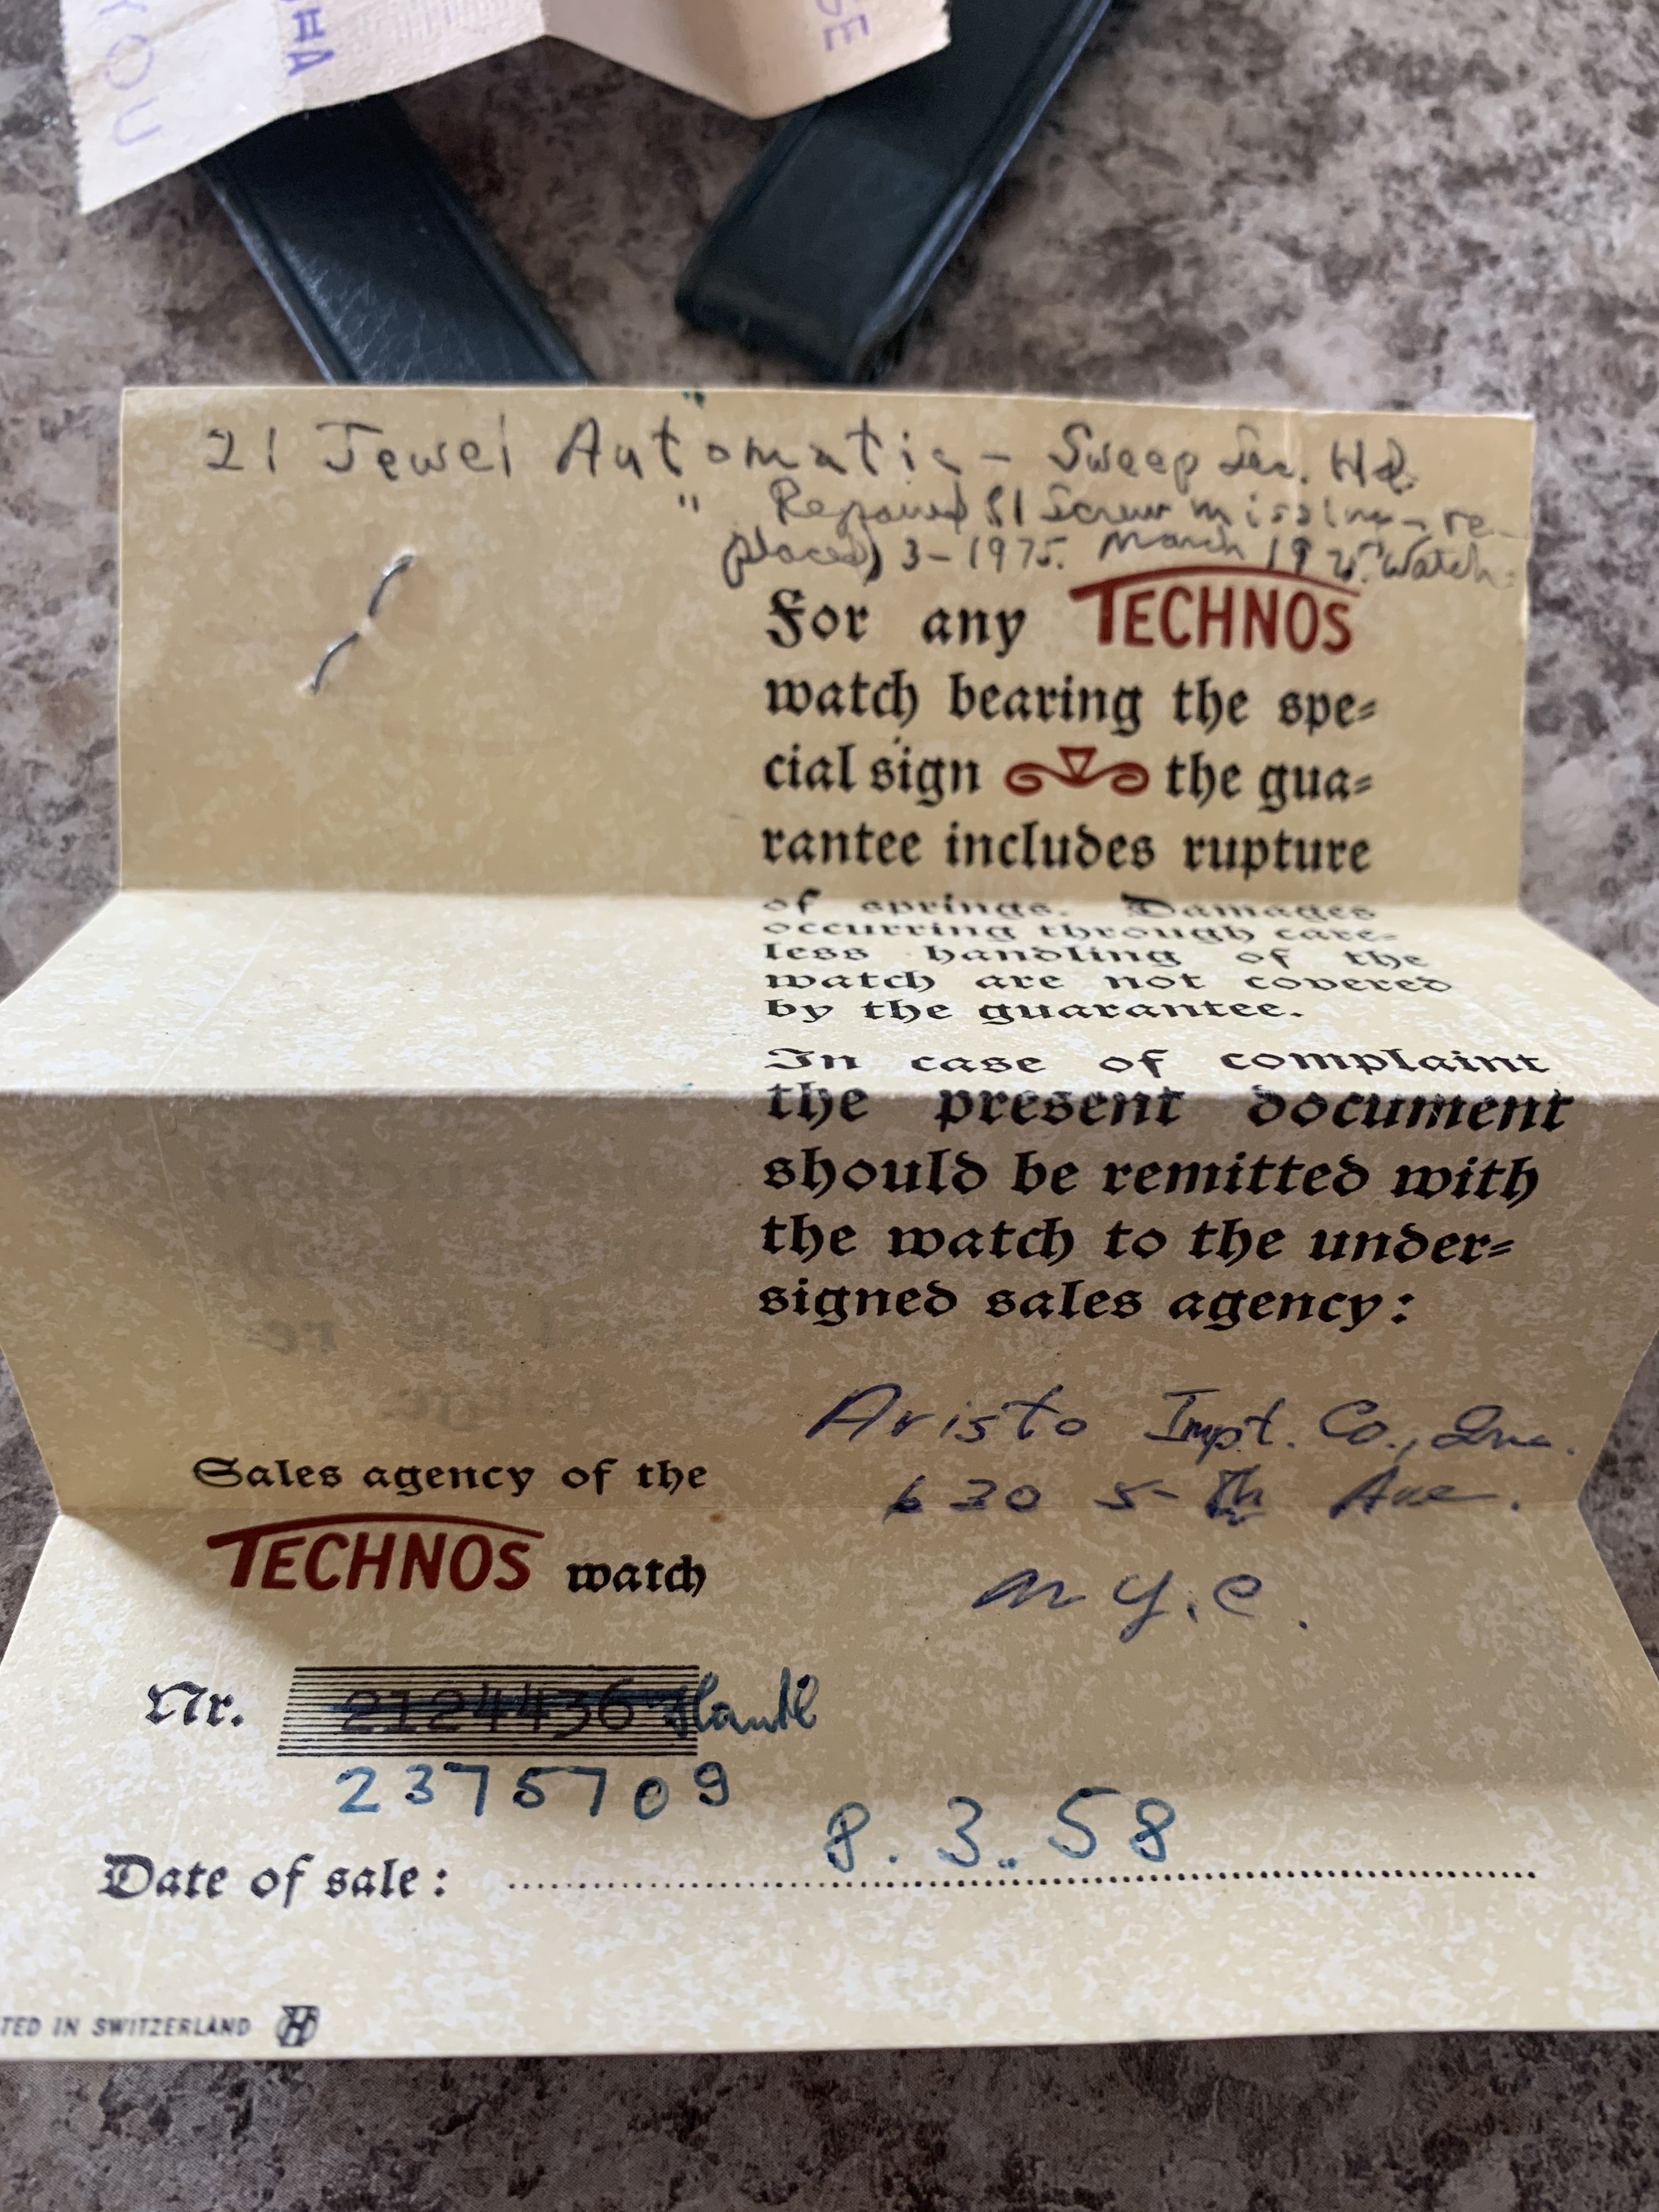 YOU
HA
SE
21 Jewel Automatic - Sweep Sec. Hd.
" Repaired & 1 Screw missing - re-
placed 3-1975. March 1975. Watch
For any TECHNOS
watch bearing the spe-
cial sign the gua-
rantee includes rupture
of springs. Damages
occurring through care-
less handling of the
watch are not covered
by the guarantee.
In case of complaint
the present document
should be remitted with
the watch to the under-
signed sales agency:
Aristo Impt. Co., Inc.
630 5-th Ave.
N.Y.C.
Sales agency of the
TECHNOS watch
Nr. 2124436
2375709
Date of sale: 8.3.58
TED IN SWITZERLAND